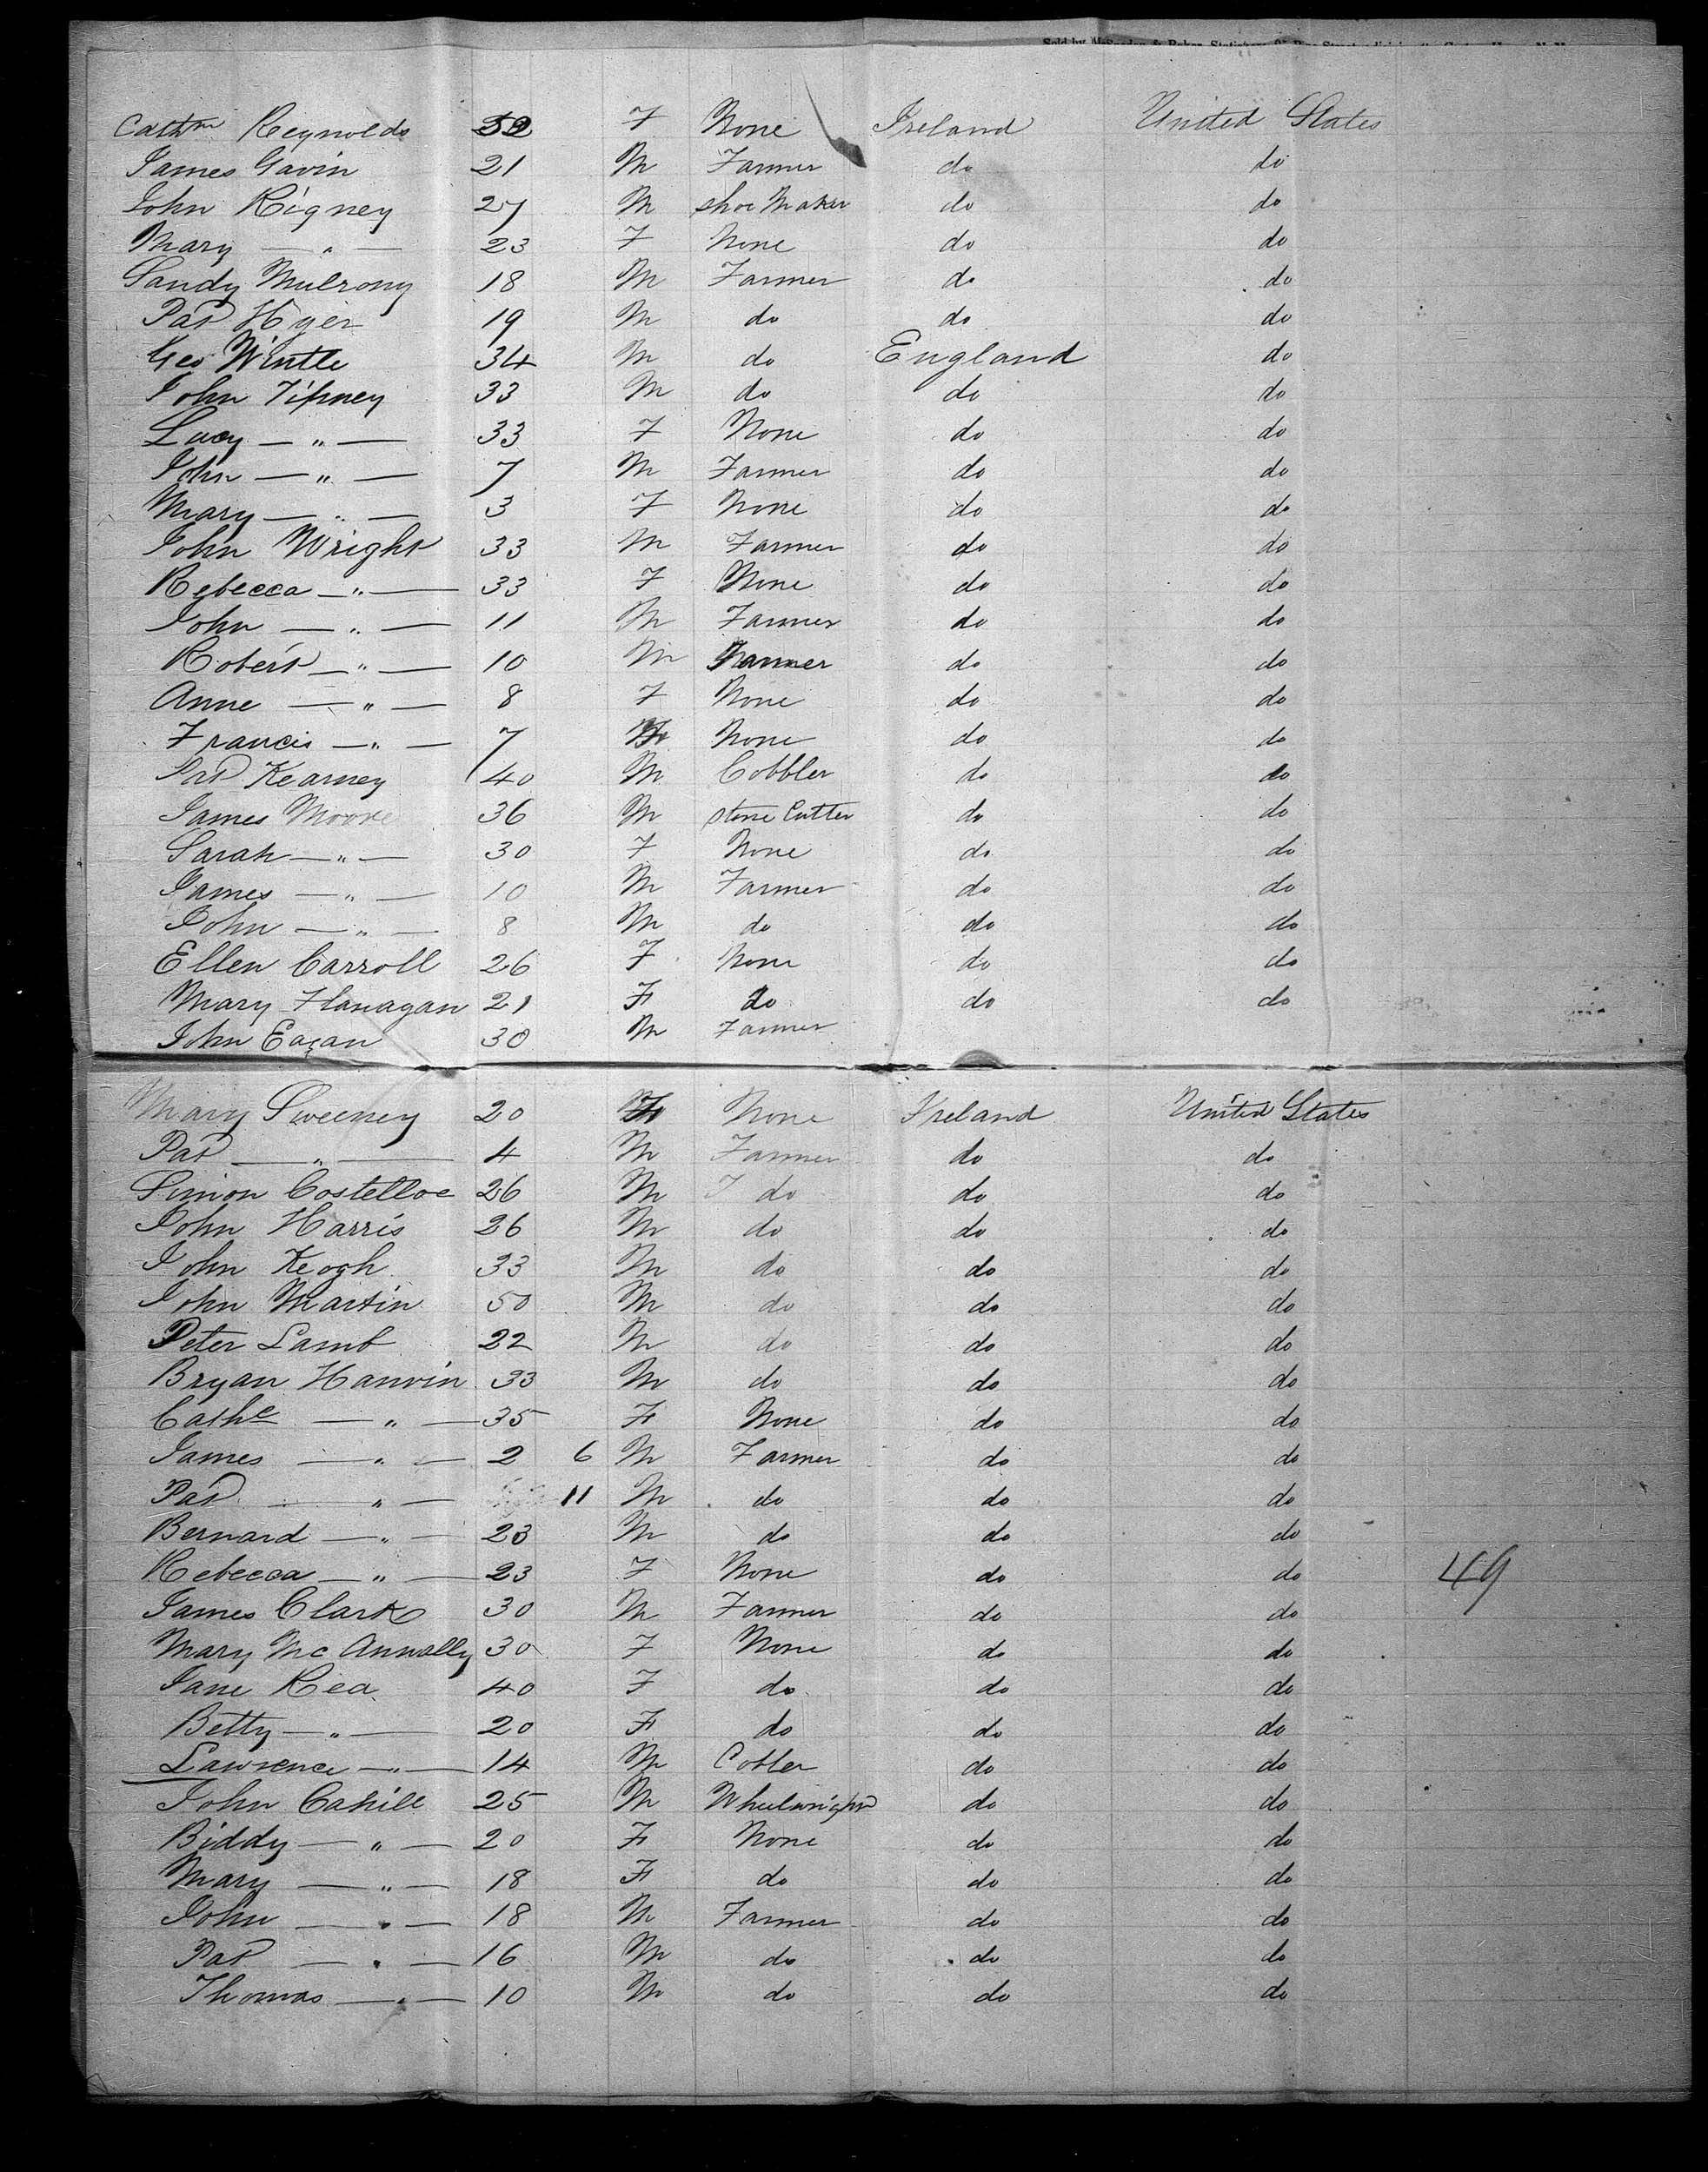 Cathn Reynolds 52 F None Ireland United States
James Gavin 21 M Farmer do do
John Rigney 27 M shoe Maker do do
Mary — " — 23 F None do do
Sandy Mulrony 18 M Farmer do do
Pat Hyer 19 M do do do
Geo Wintle 34 M do England do
John Tipney 33 M do do do
Lucy — " — 33 F None do do
John — " — 7 M Farmer do do
Mary — " — 3 F None do do
John Wright 33 M Farmer do do
Rebecca — " — 33 F None do do
John — " — 11 M Farmer do do
Robert — " — 10 M Farmer do do
Anne — " — 8 F None do do
Francis — " — 7 None do do
Pat Kearney 40 M Cobbler do do
James Moore 36 M stone Cutter do do
Sarah — " — 30 F None do do
James — " — 10 M Farmer do do
John — " — 8 M do do do
Ellen Carroll 26 F None do do
Mary Flanagan 21 F do do do
John Eagan 30 M Farmer
Mary Sweeney 20 F None Ireland United States
Pat — " — 4 M Farmer do do
Simon Costelloe 26 M do do do
John Harris 26 M do do do
John Keogh 33 M do do do
John Martin 50 M do do do
Peter Lamb 22 M do do do
Bryan Hanvin 33 M do do do
Cathe — " — 35 F None do do
James — " — 2 6 M Farmer do do
Pat — " — 11 M do do do
Bernard — " — 23 M do do do
Rebecca — " — 23 F None do do 49
James Clark 30 M Farmer do do
Mary Mc Annally 30 F None do do
Jane Rea 40 F do do do
Betty — " — 20 F do do do
Lawrence — " — 14 M Cobler do do
John Cahill 25 M Wheelwright do do
Biddy — " — 20 F None do do
Mary — " — 18 F do do do
John — " — 18 M Farmer do do
Pat — " — 16 M do do do
Thomas — " — 10 M do do do